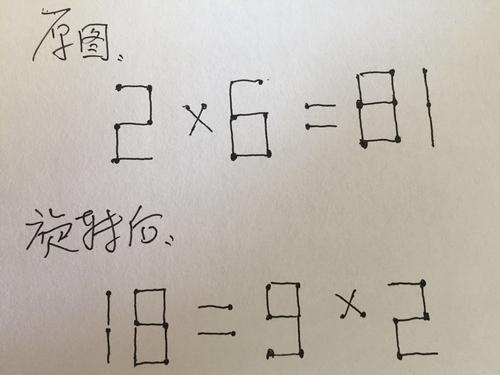 原图:
2×6=81
旋转后:
18=9×2